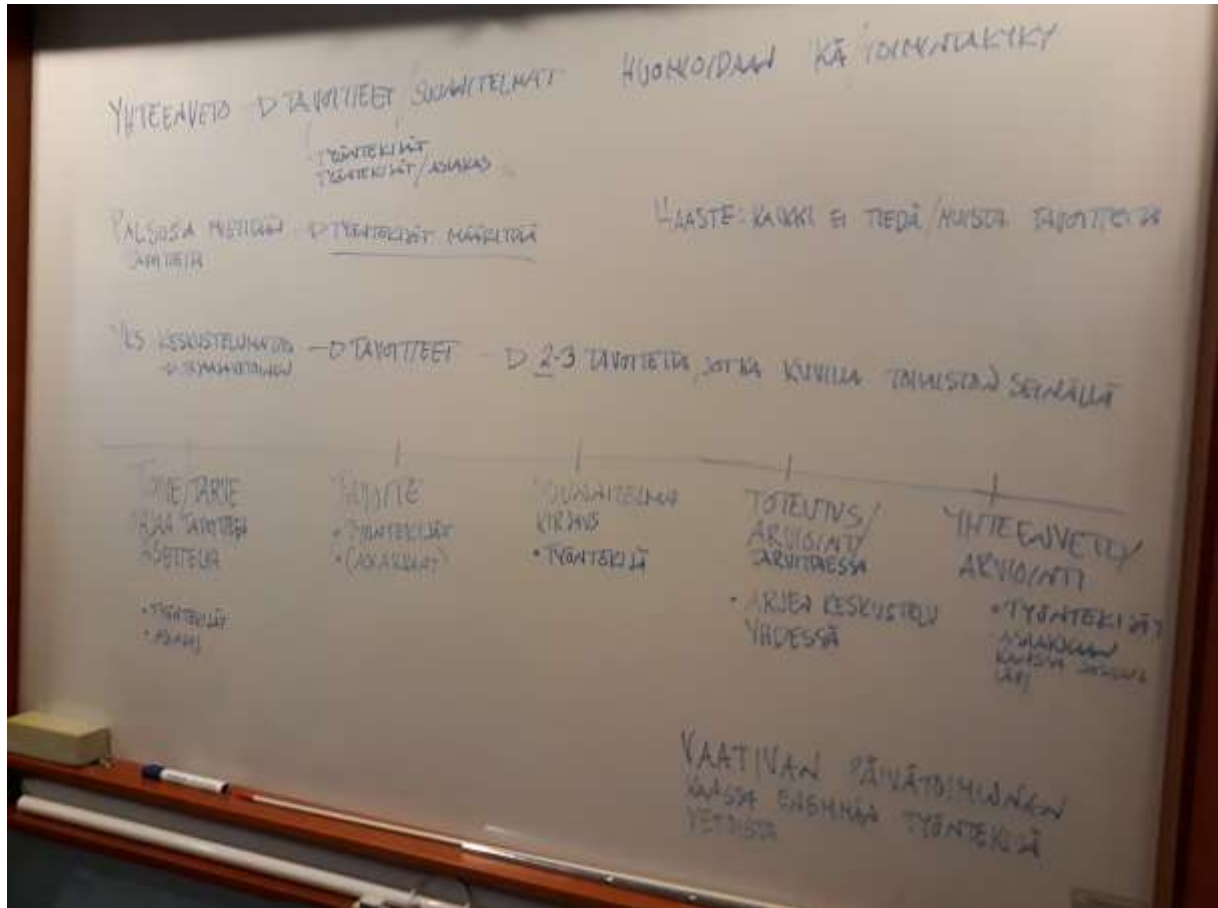 YHTEENVETO → TAVOITTEET / SUUNNITELMAT HUOMIOIDAAN KÄ TOIMINTAKYKY
TYÖNTEKIJÄT
TYÖNTEKIJÄT / ASIAKAS
PALSOSSA MIETITÄÄN → TYÖNTEKIJÄT MÄÄRITTÄÄ
TAVOITTEITA
HAASTE: KAIKKI EI TIEDÄ / MUISTA TAVOITTEITA
YKS KESKUSTELUHETKI → TAVOITTEET → 2-3 TAVOITETTA, JOTKA KUVILLA TOIMISTON SEINÄLLÄ
TOIVE/TARVE
OHJAA TAVOITTEEN
ASETTELUA
• TYÖNTEKIJÄT
• ASIAKAS
TAVOITE
• TYÖNTEKIJÄT
• (ASIAKKAAT)
SUUNNITELMA
KIRJAUS
• TYÖNTEKIJÄ
TOTEUTUS/
ARVIOINTI
TARVITTAESSA
• ARJEN KESKUSTELU
YHDESSÄ
YHTEENVETO/
ARVIOINTI
• TYÖNTEKIJÄT
ASIAKKAAN
KANSSA
LÄPI
VAATIVAN PÄIVÄTOIMINNAN
KANSSA ENEMMÄN TYÖNTEKIJÄ